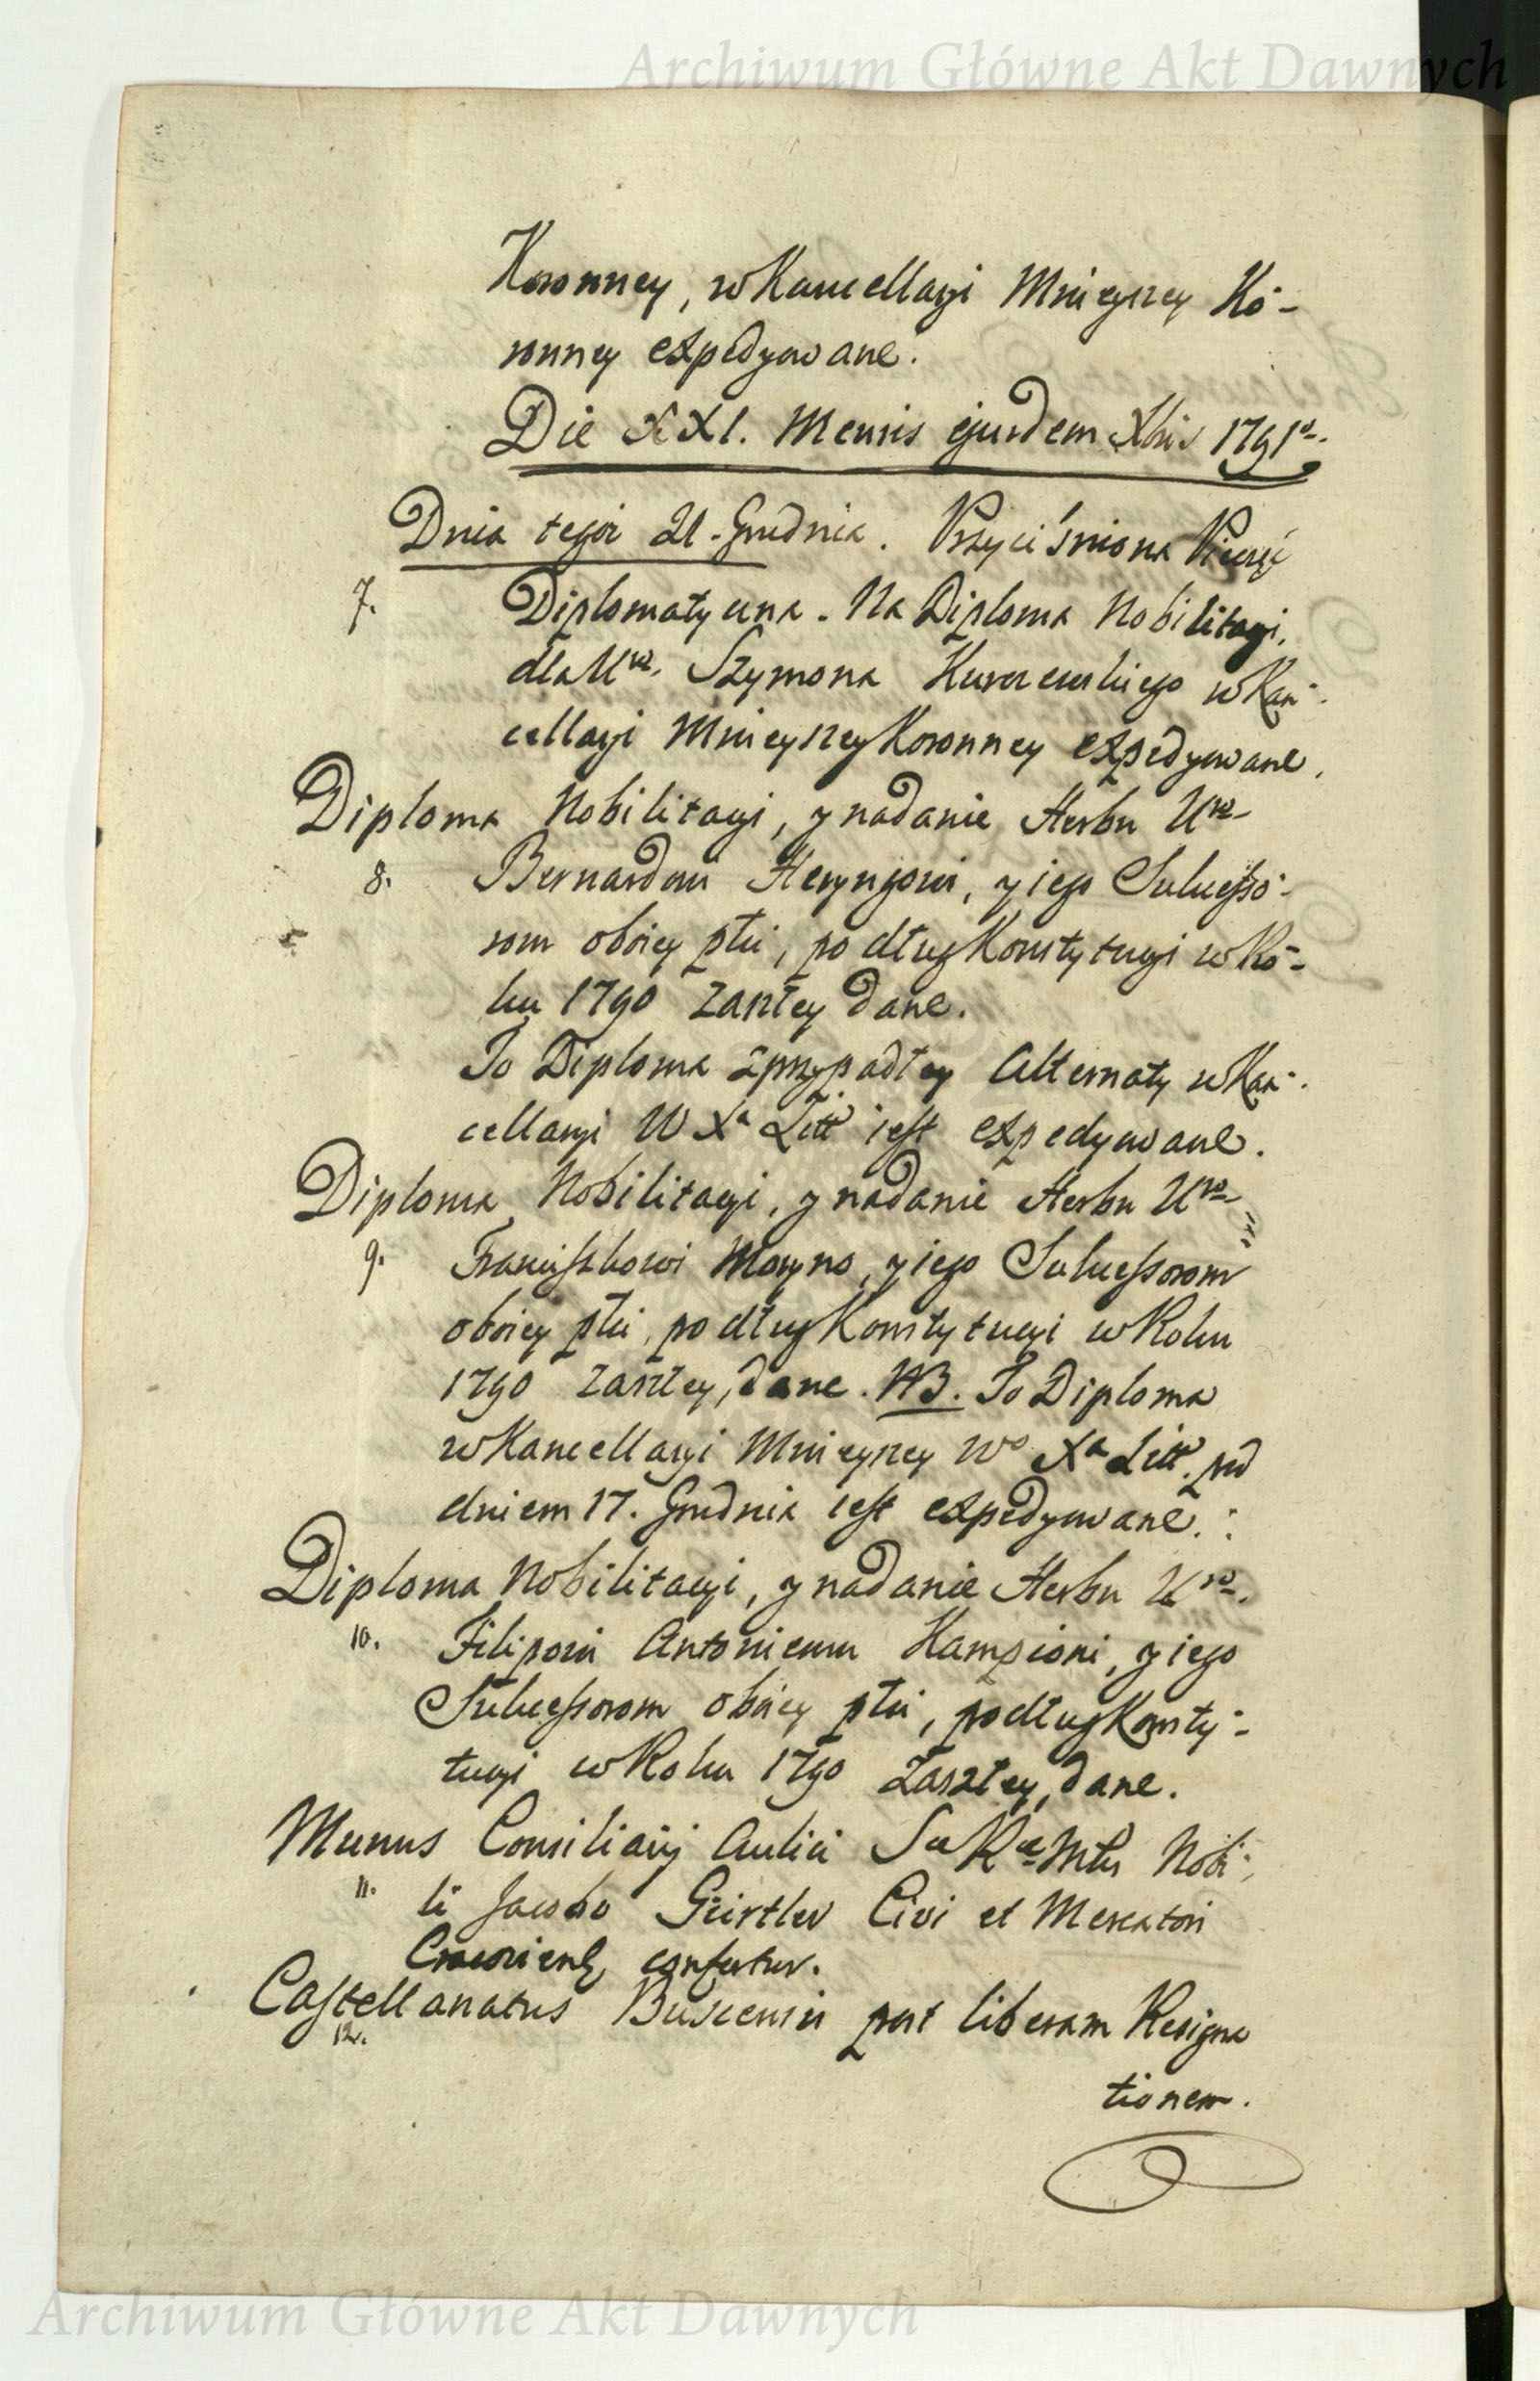 Archiwum Główne Akt Dawnych
Koronney, w Kancellaryi Mnieyszey Ko-
ronney expedyowane.
Die XXI. Mensis ejusdem Xbris 1791o.
Dnia tegoż 21. Grudnia. Przyciśniona Pieczęć
7. Diplomatyczna. Na Diploma Nobilitacyi,
dla Uro. Szymona w Kan-
cellaryi Mnieyszey Koronney expedyowane.
Diploma Nobilitacyi, y nadanie Herbu Uro-
8. Bernardowi Heryngowi, y iego Sukcesso-
rom oboiey płci, podług Konstytucyi w Ro-
ku 1790 zaszłey dane.
To Diploma z przypadłey Alternaty w Kan-
cellaryi W Xa Litt iest expedyowane.
Diploma Nobilitacyi, y nadanie Herbu Uro
9. Franciszkowi Moryno, y iego Sukcessorom
oboiey płci, podług Konstytucyi w Roku
1790 zaszłey, dane. NB. To Diploma
w Kancellaryi Mnieyszey Wo Xa Litt. pod
dniem 17. Grudnia iest expedyowane.
Diploma Nobilitacyi, y nadanie Herbu Uro.
10. Filipowi Antoniemu Kampioni, y iego
Sukcessorom oboiey płci, podług Konsty-
tucyi w Roku 1790 zaszłey, dane.
Munus Consiliarij Aulici Sae Rae Mtis Nobi-
11. li Jacobo Geirtler Civi et Mercatori
Cracoviens confertur.
Castellanatus Buscensis post liberam Resigna
12.
tionem.
Archiwum Główne Akt Dawnych